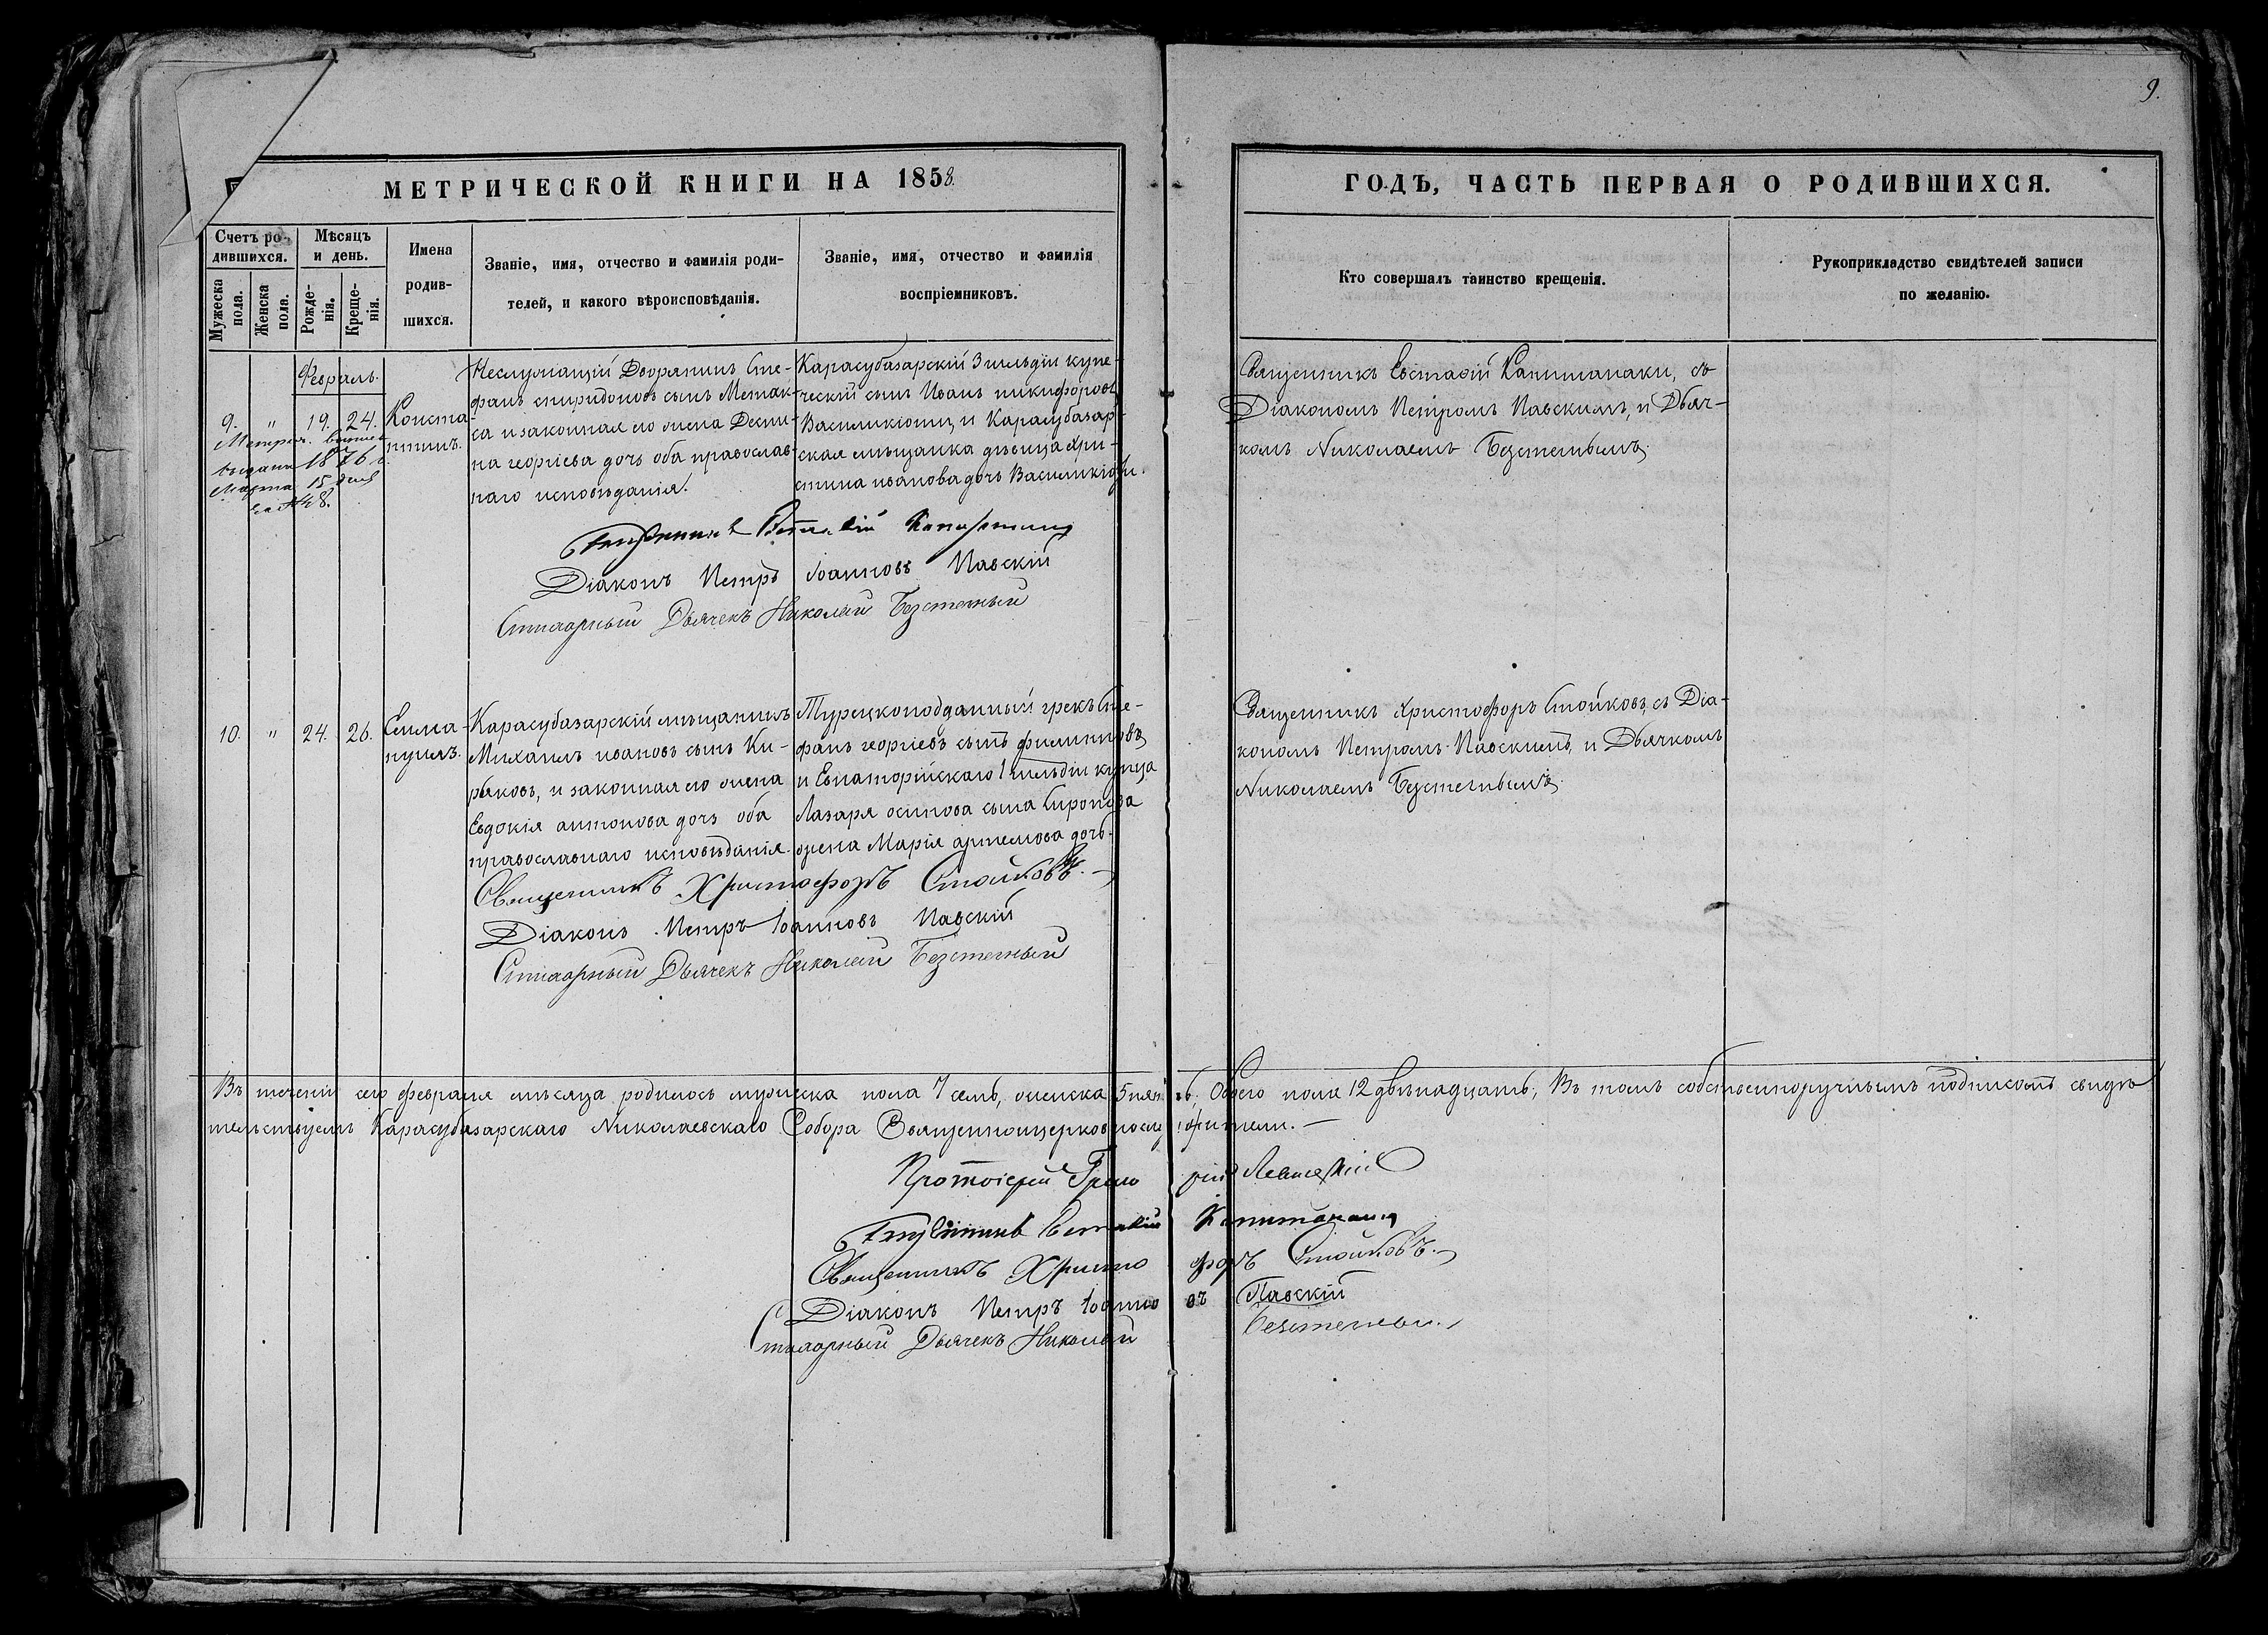 9.
МЕТРИЧЕСКОЙ КНИГИ НА 1858.
ГОДЪ, ЧАСТЬ ПЕРВАЯ О РОДИВШИХСЯ.
Счетъ ро-
дившихся.
Мужеска
пола.
Женска
пола.
Мѣсяцъ
и день.
Рожде-
нія.
Креще-
нія.
Имена
родив-
шихся.
Званіе, имя, отчество и фамилія роди-
телей, и какого вѣроисповѣданія.
Званіе, имя, отчество и фамилія
воспріемниковъ.
Кто совершалъ таинство крещенія.
Рукоприкладство свидѣтелей записи
по желанію.
Февраль.
9. " 19. 24.
Конста-
нтинъ.
Метрич.
выдана 1876 г.
Марта 15 дня
за № 48.
Неслужащій Дворянинъ Сте-
фанъ спиридоновъ сынъ Метак-
са и законная его жена Деспи-
на георгіева дочь оба православ-
наго исповѣданія.
Карасубазарскій 3 гильдіи купе-
ческій сынъ Иванъ никифоровъ
Василикіоти, и Карасубазар-
ская мѣщанка дѣвица Хри-
стина иванова дочь Василикіоти.
Священникъ Евстафій Капитанаки, съ
Діакономъ Петромъ Павскимъ, и Дьяч-
комъ Николаемъ Безстетнымъ.
Діаконъ Петръ Іоанновъ Павскій
Стихарный Дьячекъ Николай Безстетный
10. " 24. 26.
Емма-
нуилъ.
Карасубазарскій мѣщанинъ
Михаилъ ивановъ сынъ Ки-
рьяковъ, и законная его жена
Евдокія антонова дочь оба
православнаго исповѣданія.
Турецкоподданный грекъ Сте-
фанъ георгіевъ сынъ филипповъ
и Евпаторійскаго 1 гильдіи купца
Лазаря осипова сына
жена Марія артемова дочь.
Священникъ Христофоръ Стойковъ, съ Діа-
кономъ Петромъ Павскимъ, и Дьячкомъ
Николаемъ Безстетнымъ.
Священникъ Христофоръ Стойковъ.
Діаконъ Петръ Іоанновъ Павскій
Стихарный Дьячекъ Николай Безстетный
Въ теченіи сего февраля мѣсяца родилось мужеска пола 7 семь, женска 5 пять, Обоего пола 12 двѣнадцать; Въ томъ собственноручнымъ подписомъ свидѣ-
тельствуемъ Карасубазарскаго Николаевскаго Собора Священноцерковнослужители.
Протоіерей
Капитанаки
Священникъ Христофоръ Стойковъ.
Діаконъ Петръ Іоанновъ Павскій
Стихарный Дьячекъ Николай Безстетный.